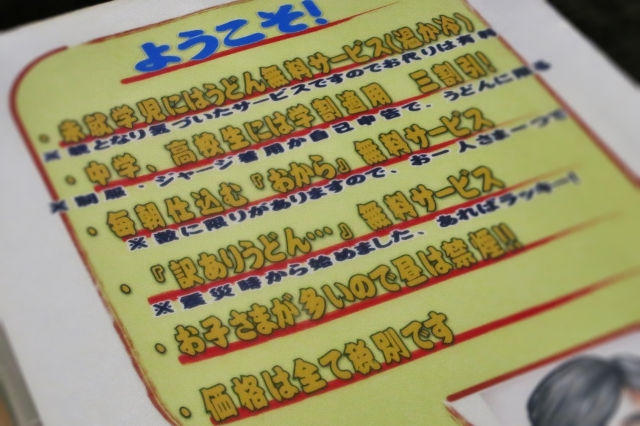 ようこそ!
・未就学児にはうどん無料サービス(温か冷)
※親となり気づいたサービスですのでお代りは有料
・中学、高校生には学割適用 三割引!!
※制服・ジャージ着用か自己申告で・うどんに限る
・毎朝仕込む『おから』無料サービス
※数に限りがありますので、お一人さま一つで
・『訳ありうどん…』無料サービス
※震災時から始めました、あればラッキー!
・お子さまが多いので昼は禁煙!!
・価格は全て税別です